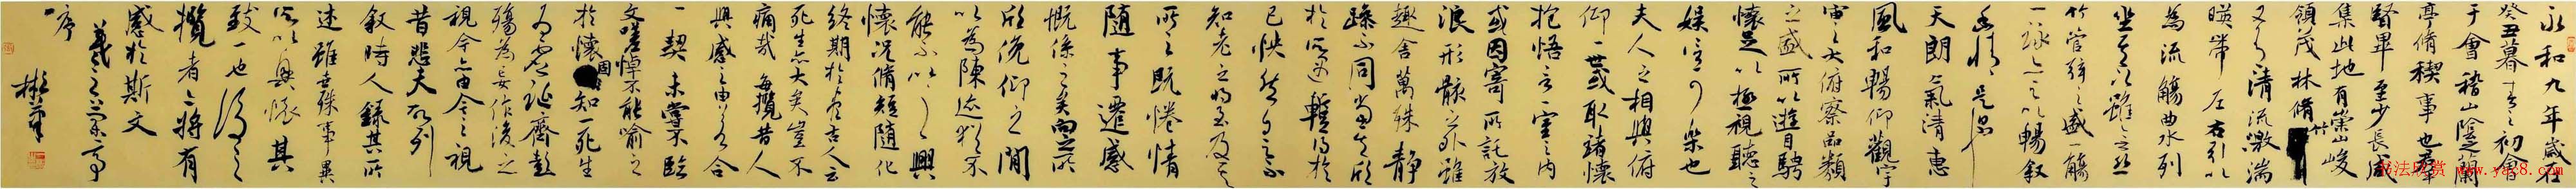 永和九年歲在
癸丑暮春之初會
于會稽山陰之蘭
亭脩稧事也羣
賢畢至少長咸
集此地有崇山峻
領茂林脩竹
又有清流激湍
暎帶左右引以
為流觴曲水列
坐其次雖無絲
竹管弦之盛一觴
一詠亦足以暢敘
幽情是日
天朗氣清惠
風和暢仰觀宇
宙之大俯察品類
之盛所以遊目騁
懷足以極視聽之
娛信可樂也
夫人之相與俯
仰一世或取諸懷
抱悟言一室之內
或因寄所託放
浪形骸之外雖
趣舍萬殊靜
躁不同當其欣
於所遇暫得於
己怏然自足不
知老之將至及其
所之既惓情
隨事遷感
慨係之矣向之所
欣俛仰之間
以為陳迹猶不
能不以之興
懷況脩短隨化
終期於盡古人云
死生亦大矣豈不
痛哉每攬昔人
興感之由若合
一契未嘗不臨
文嗟悼不能喻之
於懷固知一死生
為虛誕齊彭
殤為妄作後之
視今亦由今之視
昔悲夫故列
敘時人錄其所
述雖世殊事異
所以興懷其
致一也後之
攬者亦將有
感於斯文
羲之蘭亭
序
書法欣赏 www.yac8.com